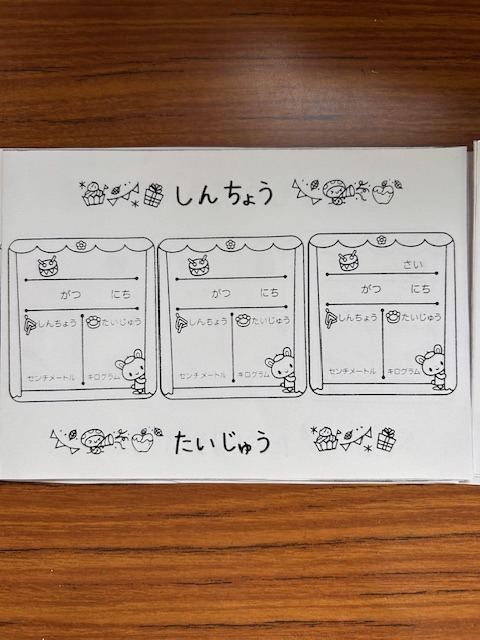 しんちょう
さい
がつ にち がつ にち がつ にち
しんちょう たいじゅう しんちょう たいじゅう しんちょう たいじゅう
センチメートル キログラム センチメートル キログラム センチメートル キログラム
たいじゅう